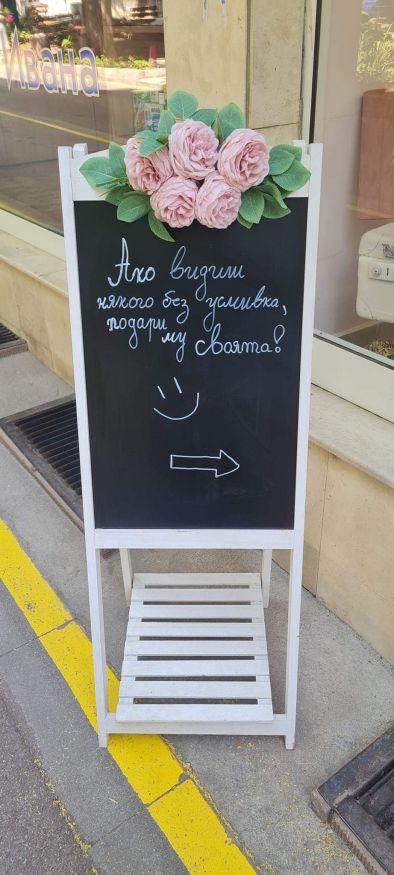 Ивана
Ако видиш
някого без усмивка,
подари му своята!